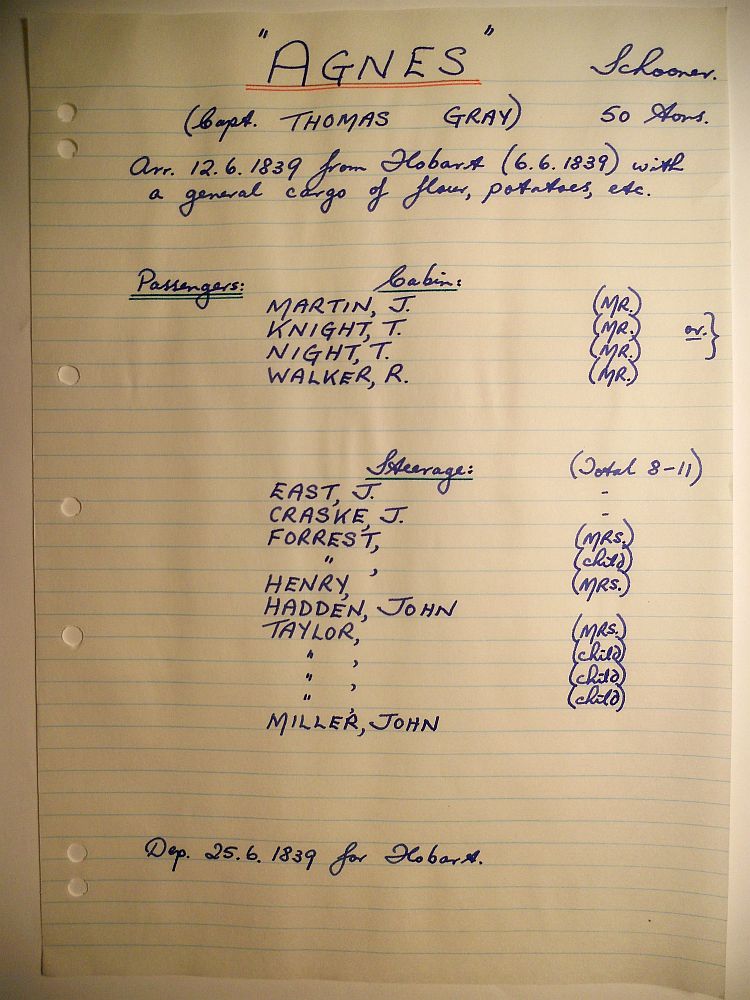 "AGNES" Schooner.
(Capt. THOMAS GRAY) 50 Tons.
Arr. 12.6.1839 from Hobart (6.6.1839) with
a general cargo of flour, potatoes, etc.
Passengers: Cabin:
MARTIN, J. (MR.)
KNIGHT, T. (MR.) or }
NIGHT, T. (MR.)
WALKER, R. (MR.)
Steerage: (Total 8-11)
EAST, J. -
CRASKE, J. -
FORREST, (MRS.)
" , (child)
HENRY, (MRS.)
HADDEN, JOHN
TAYLOR, (MRS.)
" , (child)
" , (child)
" , (child)
MILLER, JOHN
Dep. 25.6.1839 for Hobart.